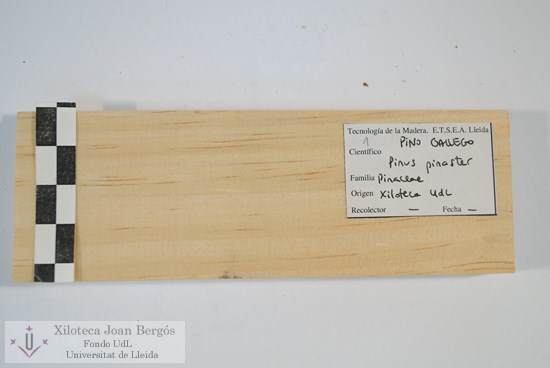 Tecnología de la Madera. E.T.S.E.A. Lleida
1 PINO GALLEGO
Científico
Pinus pinaster
Familia Pinaceae
Origen Xiloteca UdL
Recolector — Fecha —
Xiloteca Joan Bergós
Fondo UdL
Universitat de Lleida